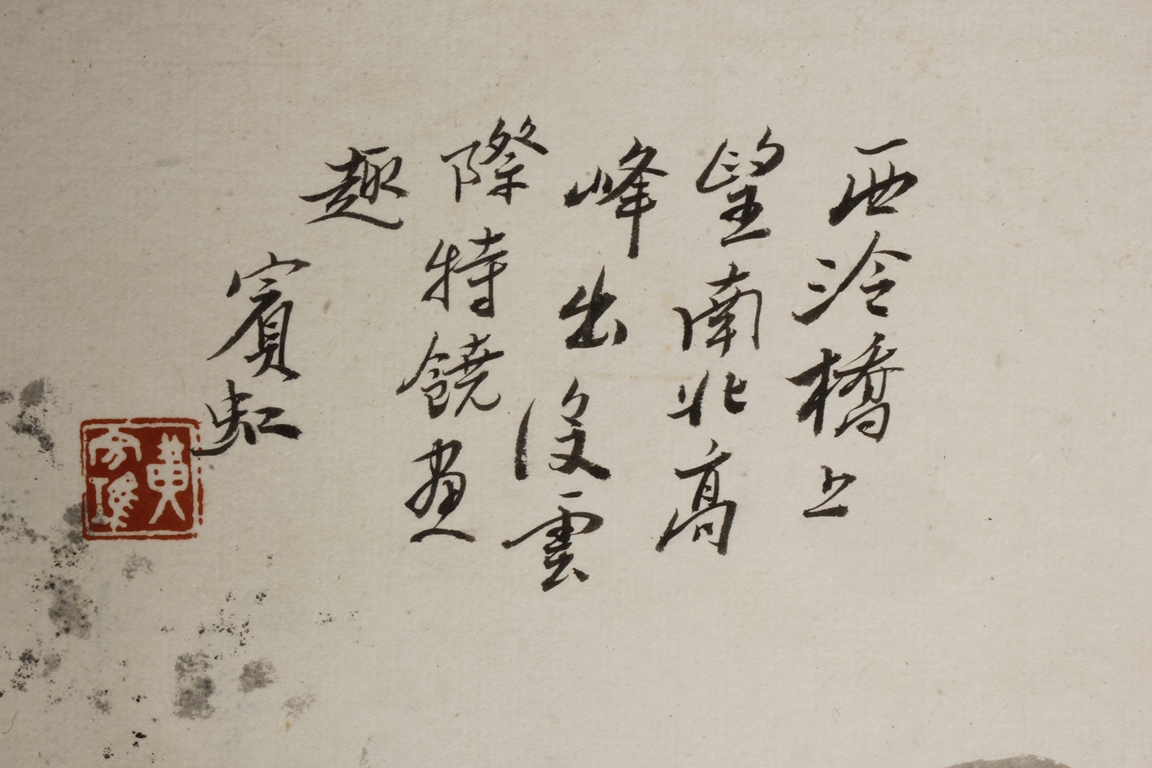 西泠橋上
望南北高
峰出没雲
際特饒畫
趣
賓虹
黃